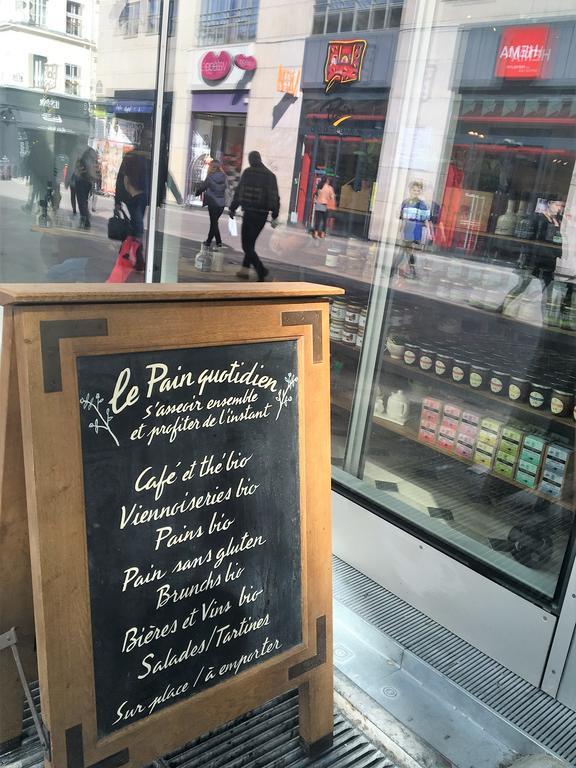 HEMA
le Pain quotidien
s'asseoir ensemble
et profiter de l'instant
Café et thé bio
Viennoiseries bio
Pains bio
Pain sans gluten
Brunchs bio
Bières et Vins bio
Salades/Tartines
Sur place / à emporter